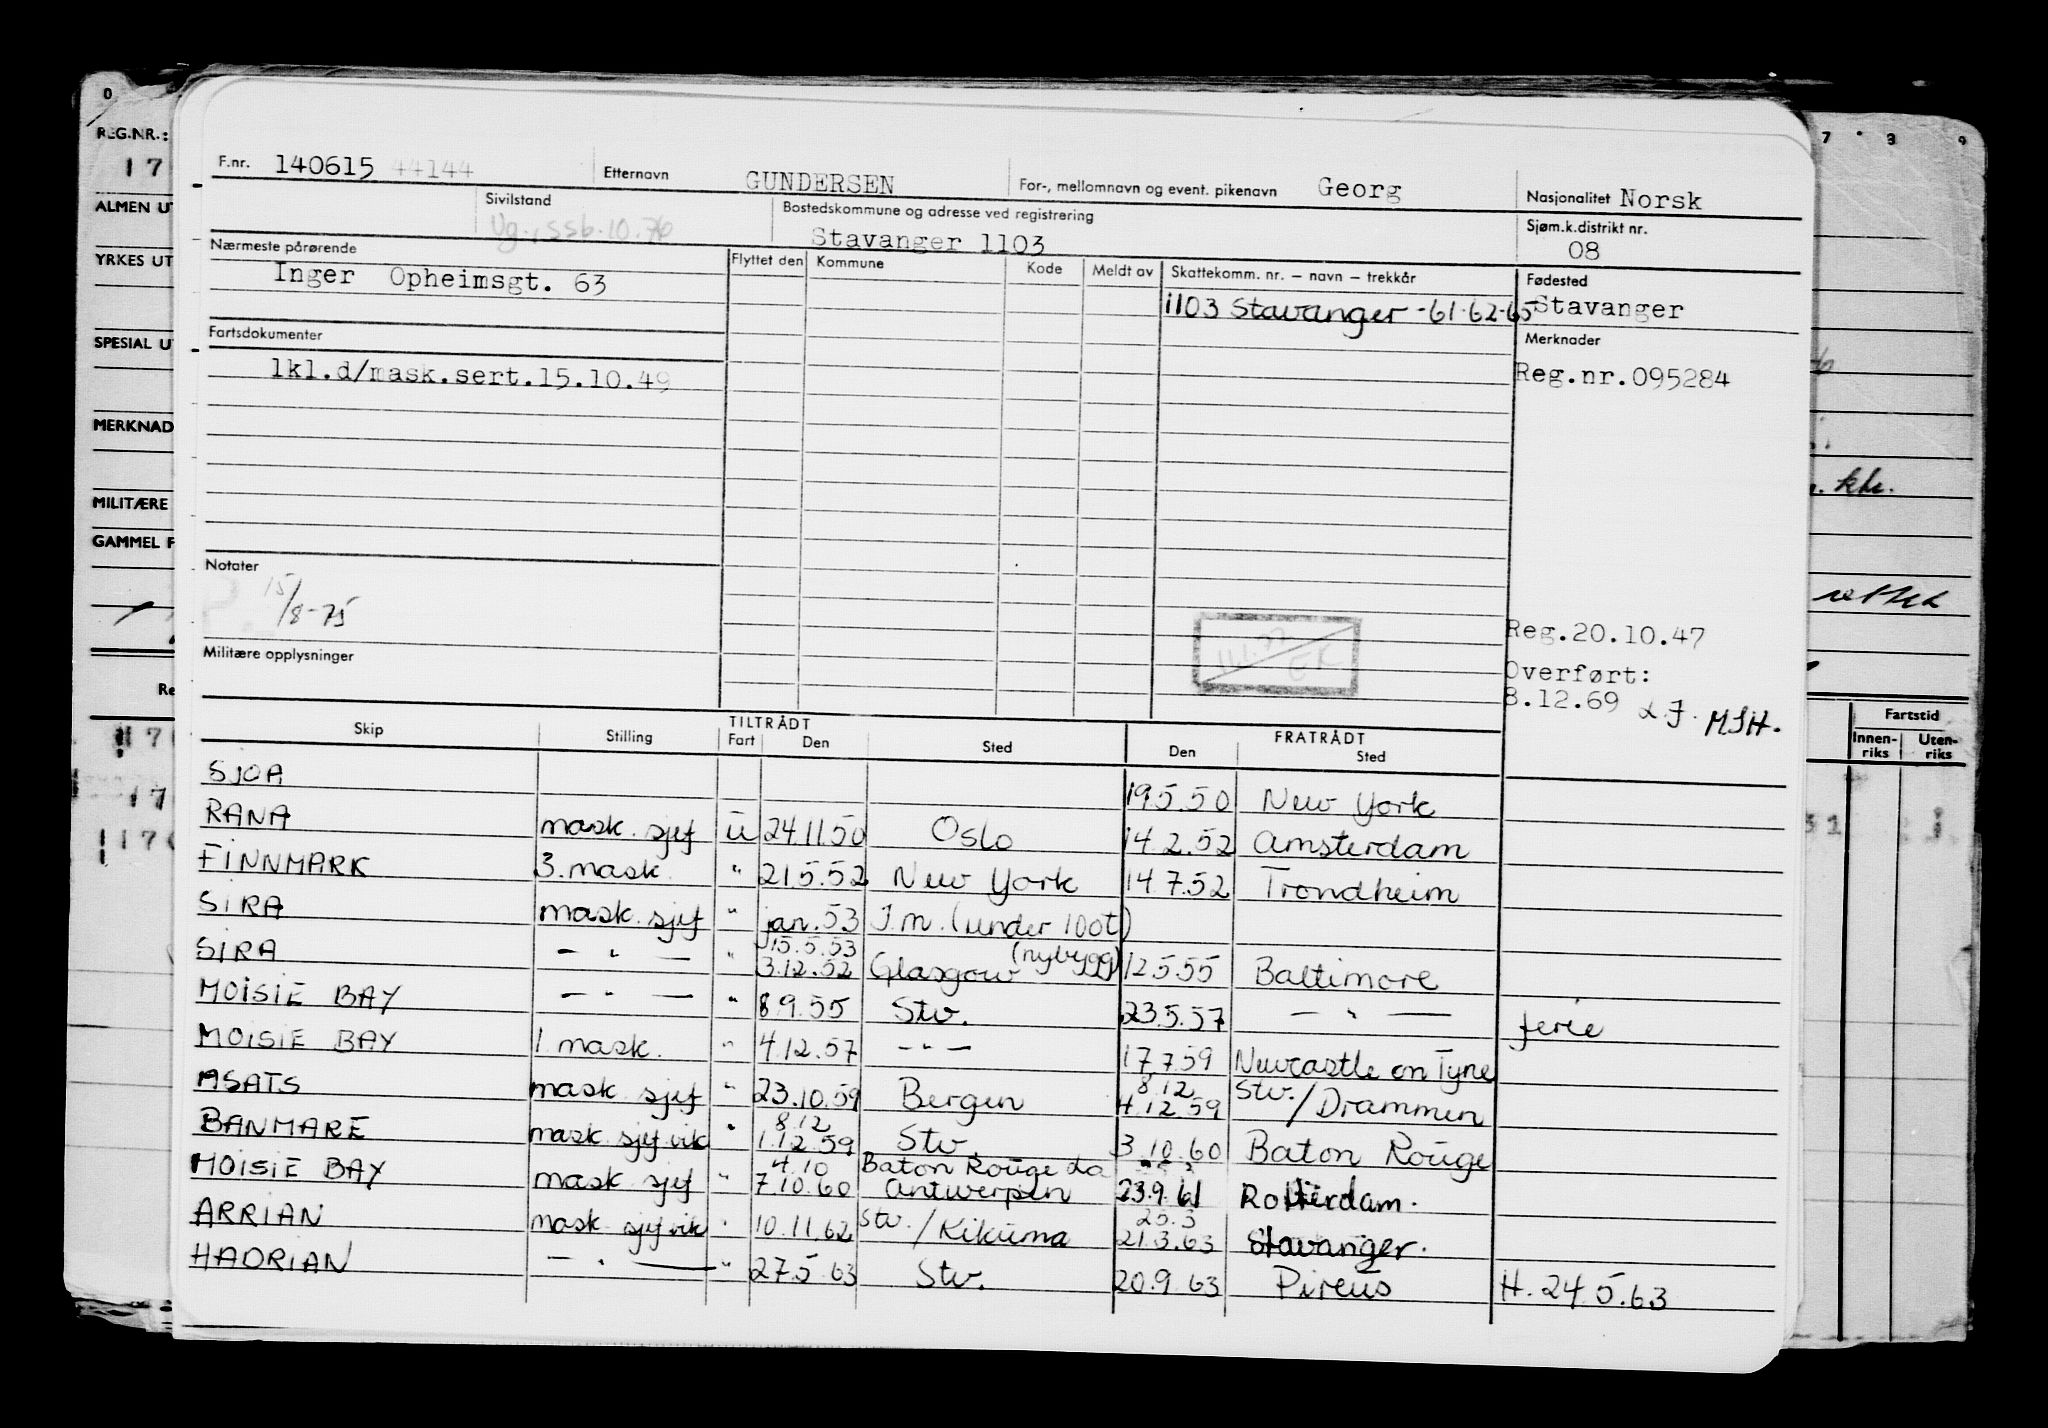 F.nr. 140615 44144 Etternavn GUNDERSEN For-, mellomnavn og event. pikenavn Georg Nasjonalitet Norsk
Sivilstand Ug., ssb.10.76 Bostedskommune og adresse ved registrering Stavanger 1103 Sjøm.k.distrikt nr. 08
Nærmeste pårørende Flyttet den Kommune Kode Meldt av Skattekomm. nr. – navn – trekkår Fødested
Inger Opheimsgt. 63 1103 Stavanger -61-62-65 Stavanger
Fartsdokumenter Merknader
1kl.d/mask.sert.15.10.49 Reg.nr.095284
Notater
15/8-75
Reg.20.10.47
Militære opplysninger
Overført:
8.12.69 MSH.
Skip Stilling TILTRÅDT Fart Den Sted FRATRÅDT Den Sted
SJOA 19.5.50 New York
RANA mask. sjef u 24.11.50 Oslo 14.2.52 Amsterdam
FINNMARK 3. mask. " 21.5.52 New York 14.7.52 Trondheim
SIRA mask. sjef " jan. 53 I.m. (under 100t)
SIRA — " — " 15.5.53 3.12.52 Glasgow (nybygg) 12.5.55 Baltimore
MOISIE BAY — " — " 8.9.55 Stv. 23.5.57 — " — ferie
MOISIE BAY 1. mask. " 4.12.57 — " — 17.7.59 Newcastle on Tyne
ASATS mask. sjef " 23.10.59 Bergen 8.12 4.12.59 Stv./Drammen
BANMARE mask. sjef vik " 8.12 1.12.59 Stv. 3.10.60 Baton Rouge
MOISIE BAY mask. sjef " 4.10 7.10.60 Baton Rouge La Antwerpen 23.9.61 Rotterdam.
ARRIAN mask. sjef vik " 10.11.62 Stv./Kikuma 25.3 21.3.63 Stavanger.
HADRIAN — " — " 27.5.63 Stv. 20.9.63 Pireus H. 24.5.63
O
REG.NR.:
17
ALMEN UT
YRKES UT
SPESIAL UT
MERKNAD
MILITÆRE
GAMMEL F
Re
7 8 9
kh.
Fartstid
Innen-riks Uten-riks